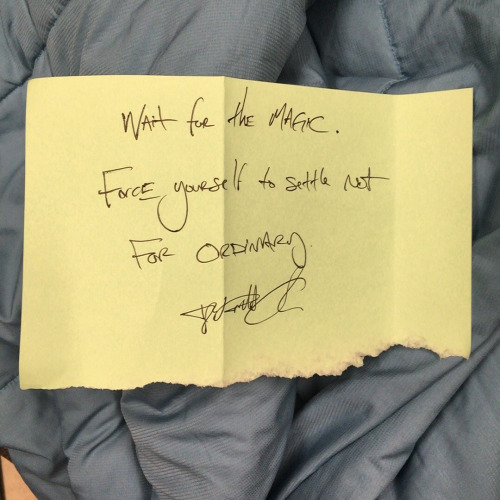 Wait for the MAGIC.
Force yourself to settle not
For ORDINARY.